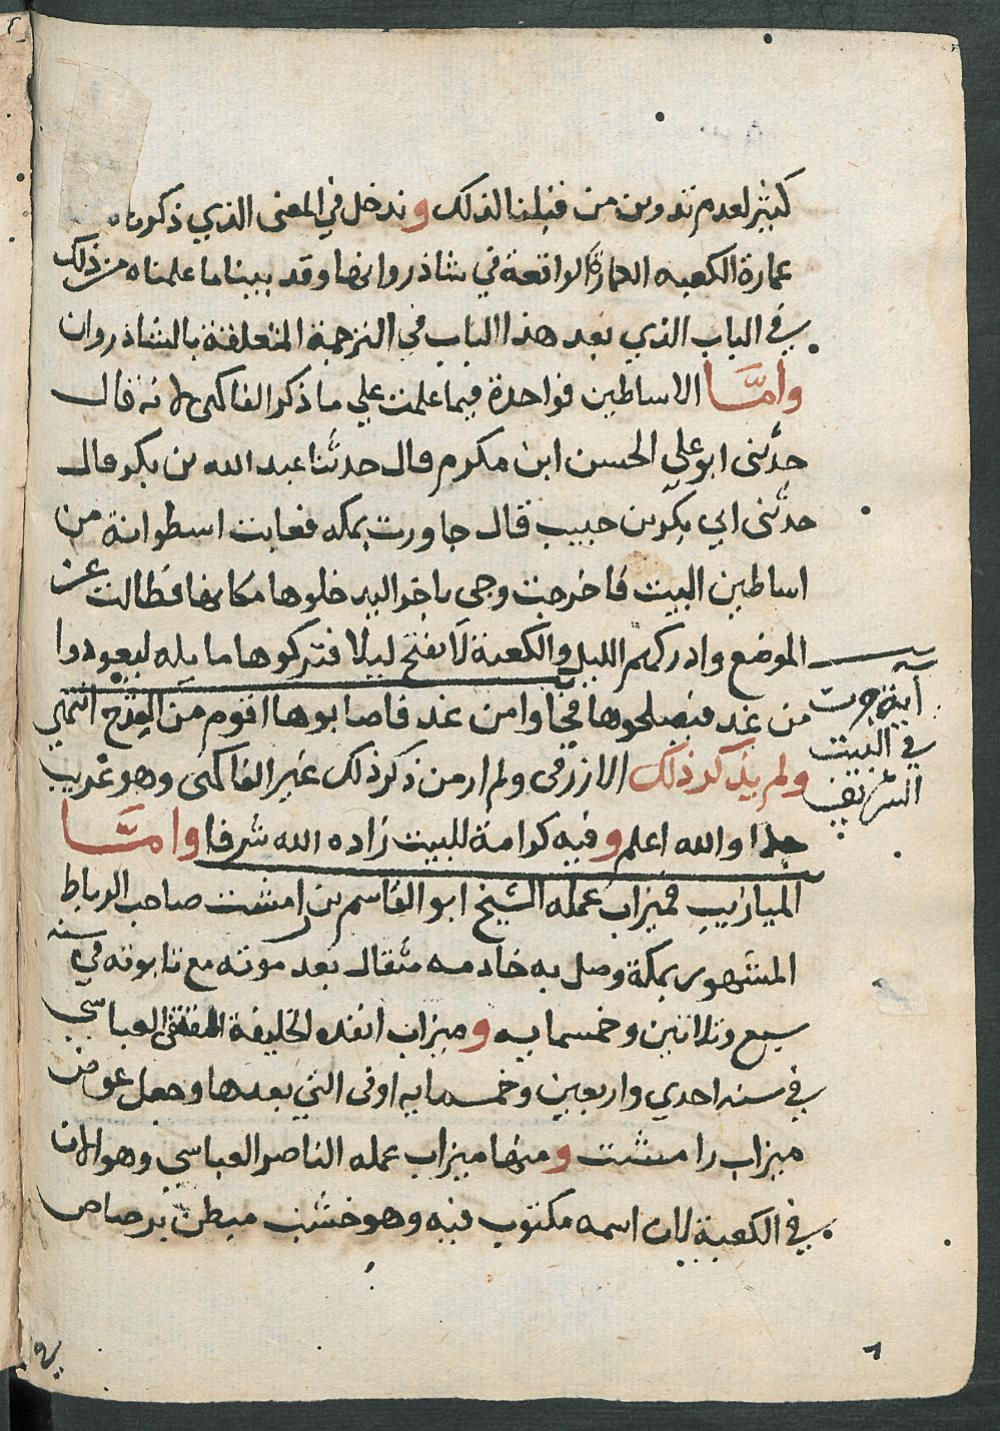 كثير لعدم تدوين من قبلنا لذلك وندخل في المعنى الذي ذكرناه
عمارة الكعبه العمارة الواقعة في شاذروانها وقد بينا ما علمناه من ذلك
في الباب الذي بعد هذا الباب في الترجمة المتعلقة بالشاذروان
وأمّا الاساطين فواحدة فيما علمت علي ما ذكر الفاكهى لانه قال
حدثنى ابو علي الحسن ابن مكرم قال حدثنا عبد الله بن بكر قال
حدثنى ابي بكر بن حبيب قال جاورت بمكه فعابت اسطوانة من
اساطين البيت فاخرجت وجى باخرا ليدخلوها مكانها فطالت عن
الموضع وادركهم الليل والكعبة لا تفتح ليلا فتركوها مايله ليعودوا
من غد فيصلحوها فجاوا من غد فاصابوها اقوم من القدح انتهى
ولم يذكر ذلك الازرقى ولم ار من ذكر ذلك غير الفاكهى وهو غريب
جدا والله اعلم وفيه كرامة للبيت زاده الله شرفا وامّا
الميازيب فميزاب عمله الشيخ ابو القاسم بن رامشت صاحب الرباط
المشهور بمكة وصل به خادمه مثقال بعد موته مع تابوته في سنه
سبع وثلاثين وخمسمايه وميزاب انفذه الخليفة المقتفى العباسي
في سنه احدي واربعين وخمسمايه او فى التي بعدها وجعل عوض
ميزاب رامشت ومنها ميزاب عمله الناصر العباسي وهو الان
في الكعبة لان اسمه مكتوب فيه وهو خشب مبطن برصاص
آية جرت
في البيت
الشريف